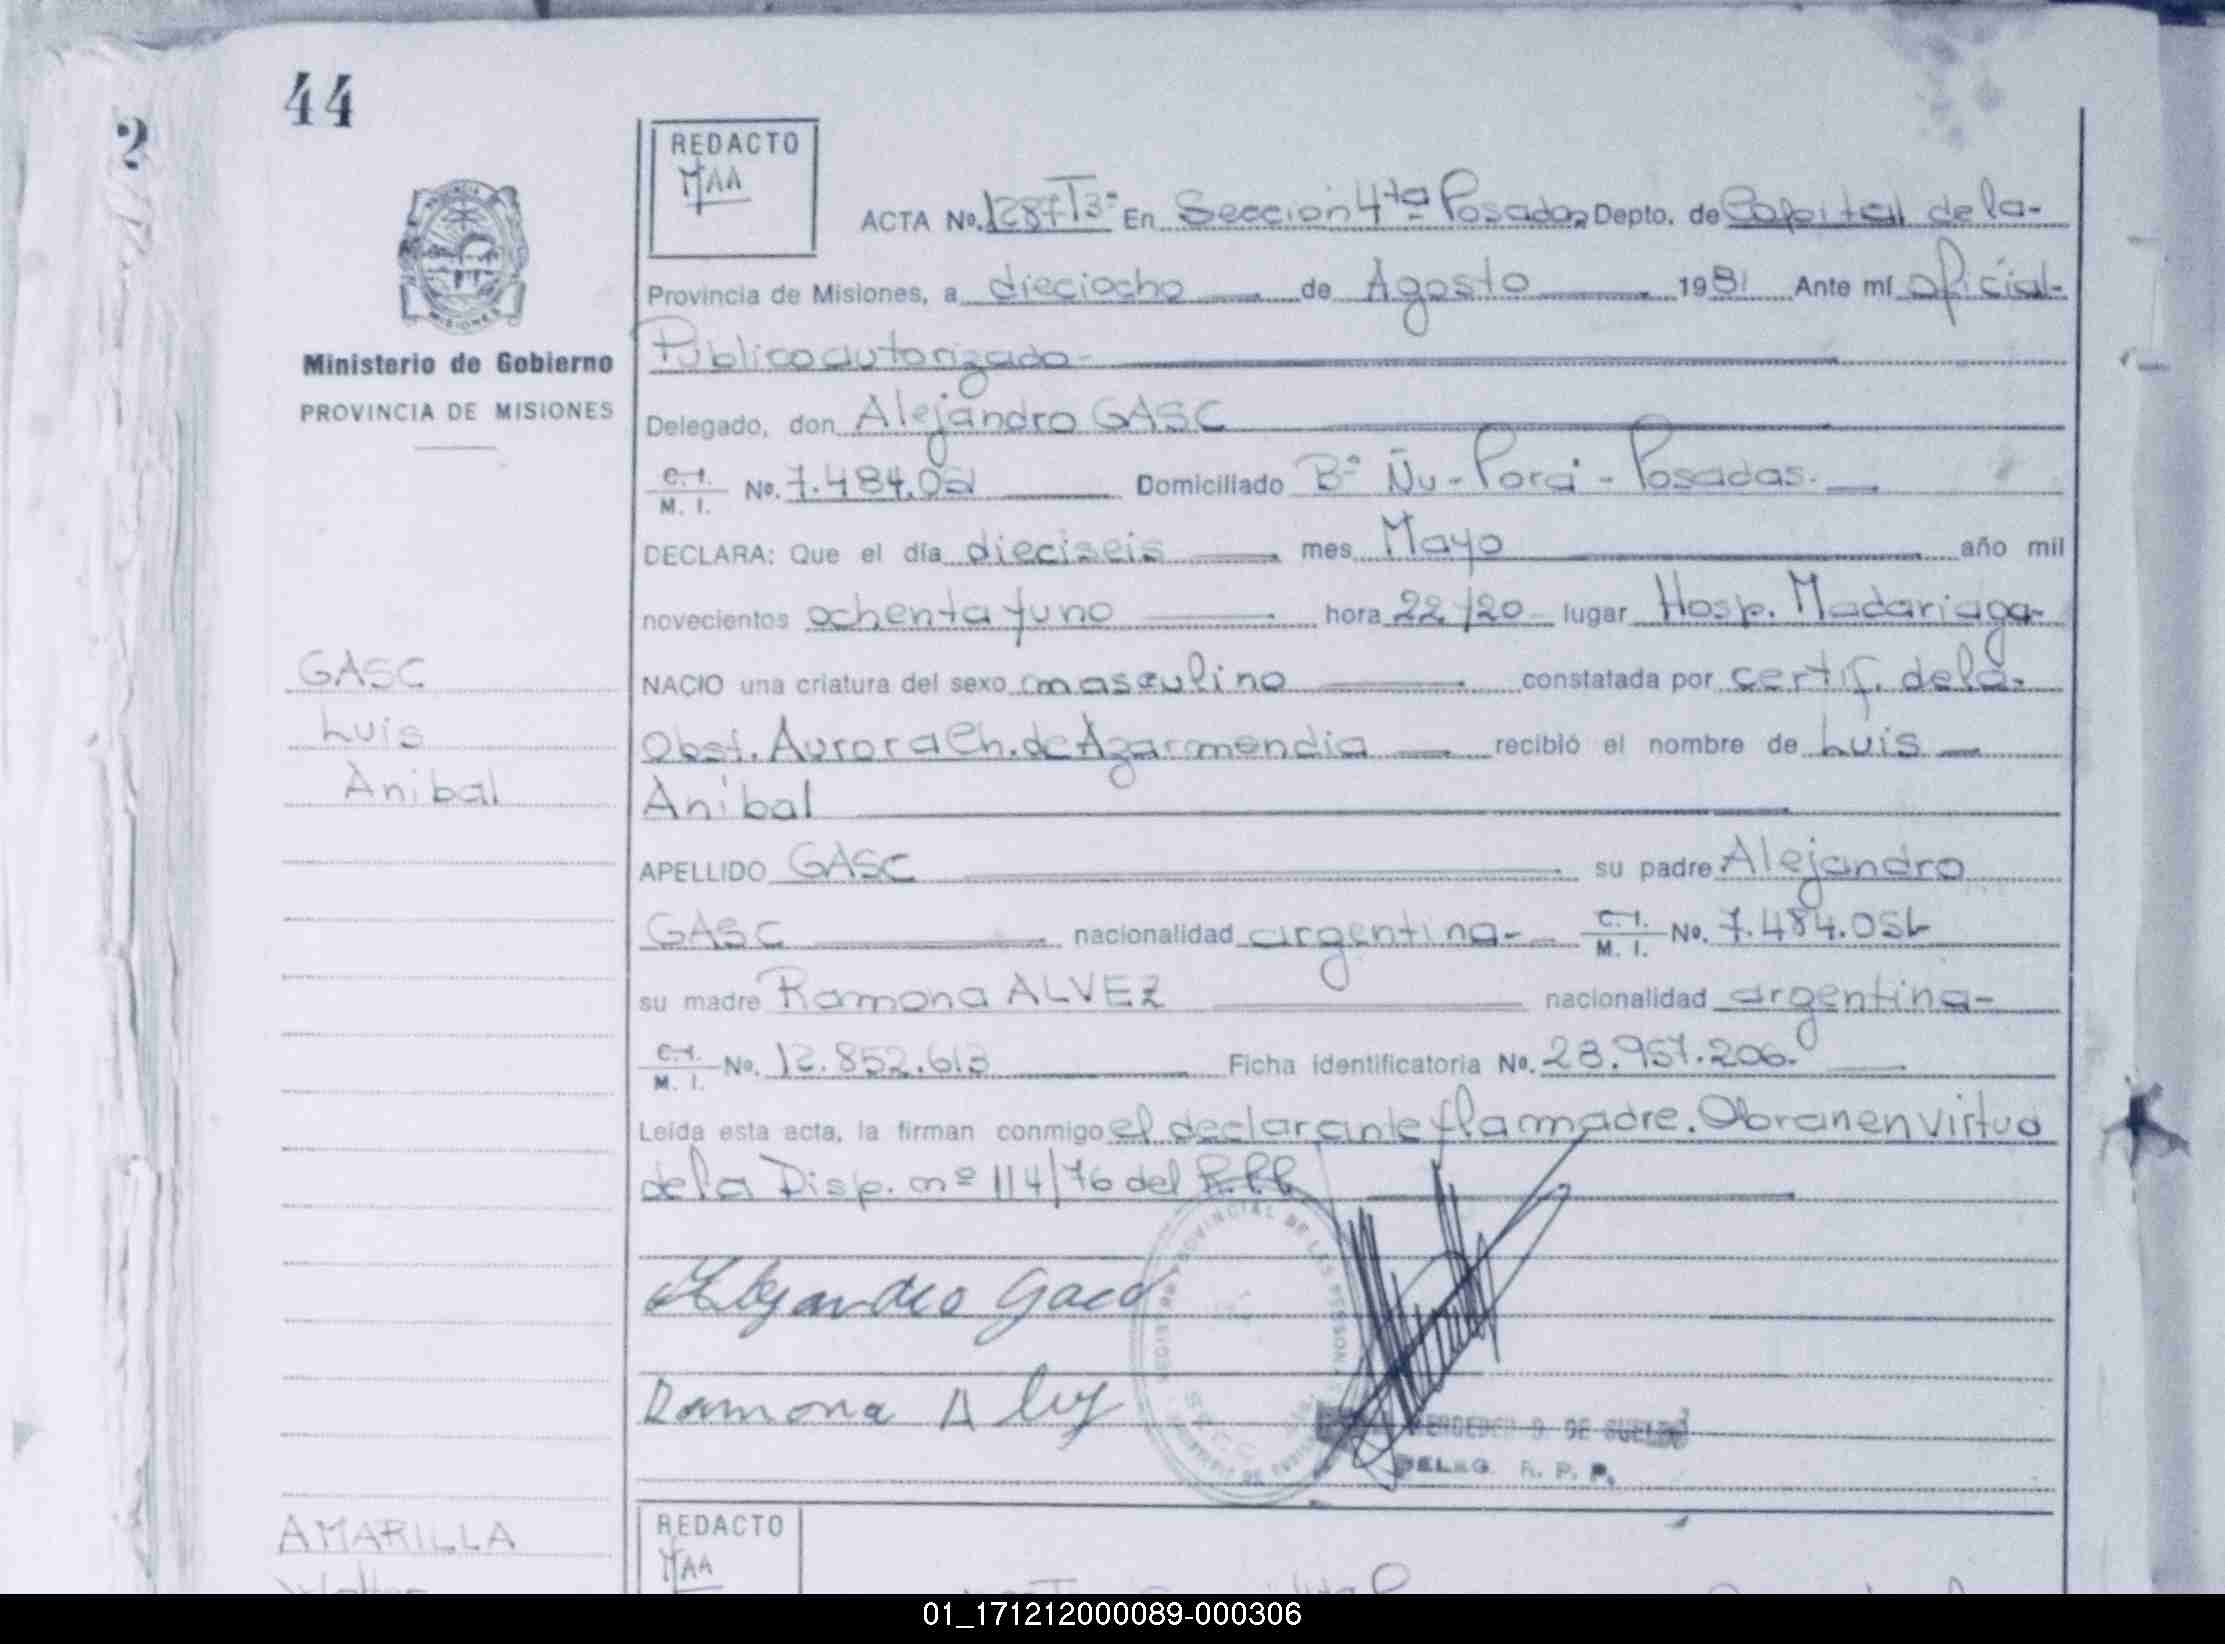 44
2
REDACTO
MAA
ACTA No. 1287T3º En Sección 4ta Posadas Depto. de Capital de la-
Provincia de Misiones, a dieciocho de Agosto 1981 Ante mí oficial-
Público autorizado-
Ministerio de Gobierno
PROVINCIA DE MISIONES
MISIONES
Delegado, don Alejandro GASC
C.I. M. I. No. 7.484.051 Domiciliado Bº Ñu-Porá-Posadas.
DECLARA: Que el día dieciseis mes Mayo año mil
novecientos ochenta y uno hora 22/20 lugar Hosp. Madariaga-
GASC
NACIO una criatura del sexo masculino constatada por certif. de la-
Luis
Obst. Aurora Ch. de Azarmendia recibió el nombre de Luis
Anibal
Anibal
APELLIDO GASC su padre Alejandro
GASC nacionalidad argentina- C.I. M. I. No. 7.484.051
su madre Ramona ALVEZ nacionalidad argentina-
C.I. M. I. No. 12.852.613 Ficha identificatoria No. 28.957.206-
Leída esta acta, la firman conmigo el declarante y la madre. Obran en virtud
de la Disp. nº 114/76 del R.P.P.
Alejandro Gasc
Ramona Alvez
REGISTRO PROVINCIAL DE LAS PERSONAS
D. DE
DELEG. R. P. P.
AMARILLA
REDACTO
MAA
01_171212000089-000306